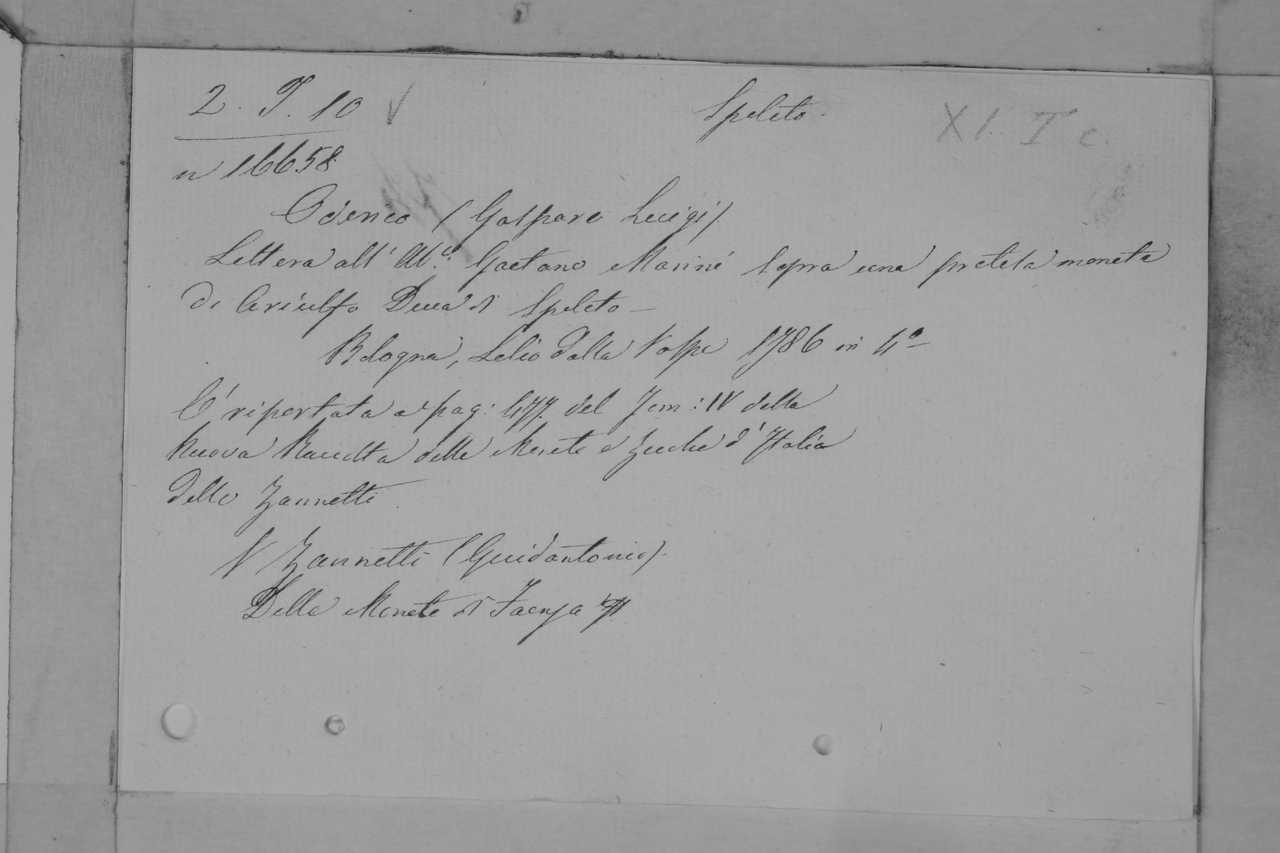 2. T. 10 V
Spoleto.
XI. I c.
n 16658
Oderico (Gaspare Luigi)
Lettera all' Ab.e Gaetano Marini sopra una pretesa moneta
di Ariulfo Duca di Spoleto –
Bologna, Lelio dalla Volpe 1786 in 4º –
E' riportata a pag: 477. del Tom: IV della
Nuova Raccolta delle Monete e Zecche d'Italia
dello Zannetti.
V Zannetti (Guidantonio).
Delle Monete di Faenza